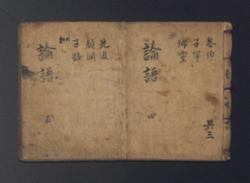 共三
泰伯
子罕
鄉黨
論語
四
先進
顔淵
子路
論語
五